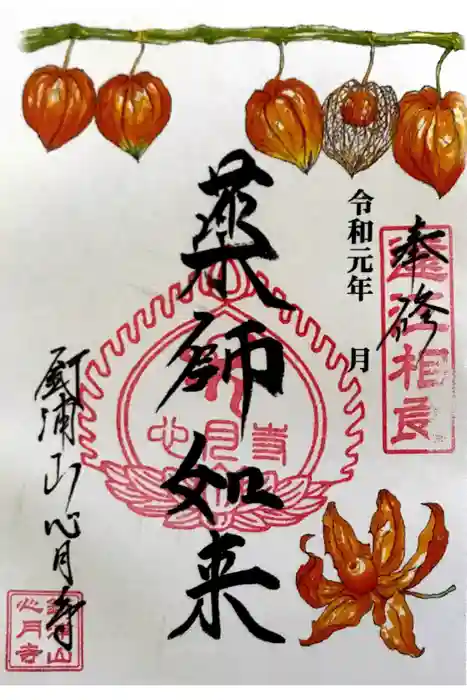 奉修
遠江相良
令和元年 月
薬師如来
心月寺
釘浦山心月寺
釘浦山
心月寺